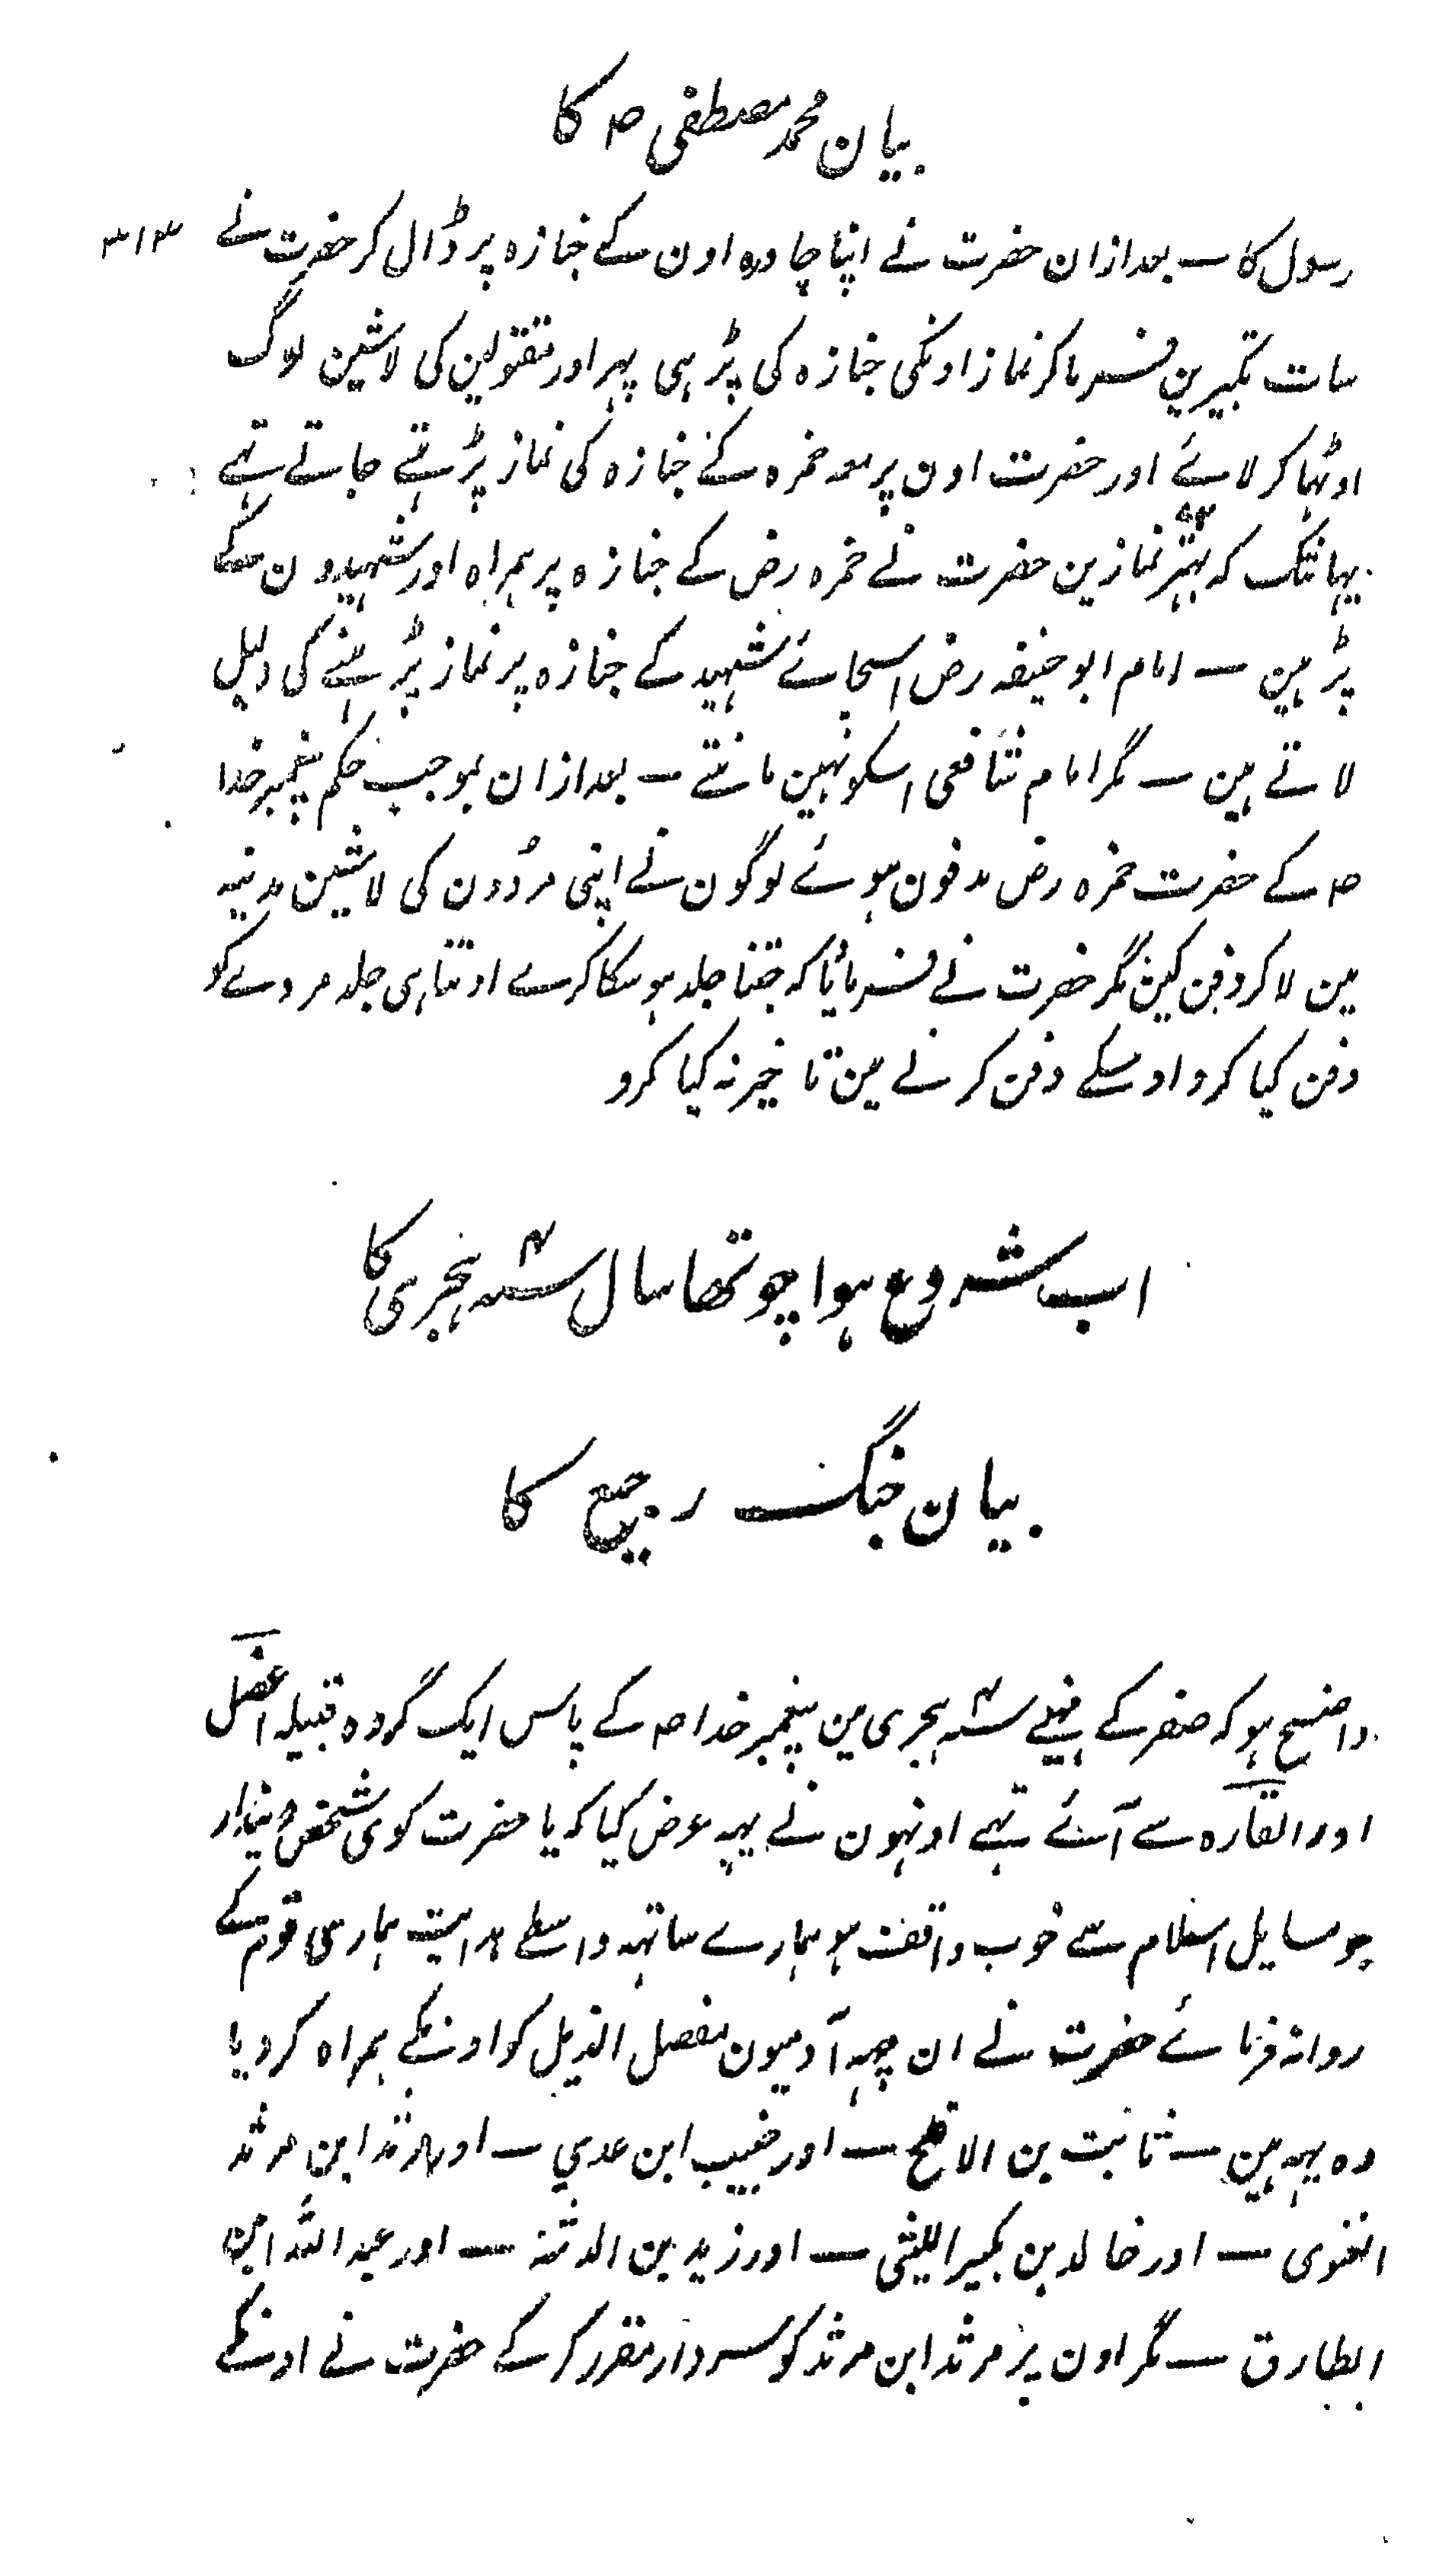 بیان محمد مصطفی ص کا
۳۱۳
رسول کا ۔ بعد ازان حضرت نے اپنا چادرہ اون کے جنازہ پر ڈال کر حضرت نے
سات تکبیرین فرما کر نماز اونکی جنازہ کی پڑہی پہر اور مقتولین کی لاشین لوگ
اوٹہا کر لائے اور حضرت اون پر معہ حمزہ کے جنازہ کی نماز پڑہتے جاتے تہے
یہانتک کہ بہتر ۷۲ نمازین حضرت نے حمزہ رض کے جنازہ پر ہمراہ اور شہیدون کے
پڑہین ۔ امام ابو حنیفہ رض اسجائے شہید کے جنازہ پر نماز پڑہنے کی دلیل
لاتے ہین ۔ مگر امام شافعی اسکو نہین مانتے ۔ بعد ازان بموجب حکم پیغمبر خدا
ص کے حضرت حمزہ رض مدفون ہوئے لوگون نے اپنی مردون کی لاشین مدینہ
مین لا کر دفن کین مگر حضرت نے فرمایا کہ جتنا جلد ہو سکا کرے اوتنا ہی جلد مردے کو
دفن کیا کرو اوسکے دفن کرنے مین تاخیر نہ کیا کرو
اب شروع ہوا چوتھا سال سنہ ۴ ہجری کا
بیان جنگ رجیع کا
واضح ہو کہ صفر کے مہینے سنہ ۴ ہجری مین پیغمبر خدا ص کے پاس ایک گروہ قبیلہ عضل
اور القارہ سے آئے تہے اونہون نے یہہ عرض کیا کہ یا حضرت کوی شخص دیندار
جو مسایل اسلام سے خوب واقف ہو ہمارے ساتہہ واسطے ہدایت ہماری قوم کے
روانہ فرمائے حضرت نے ان چہہ آدمیون مفصل الذیل کو اونکے ہمراہ کر دیا
وہ یہہ ہین ۔ ثابت بن الاقلح ۔ اور خبیب ابن عدی ۔ اور مرثد ابن مرثد
الغنوی ۔ اور خالد بن بکیر اللیثی ۔ اور زید بن الدثنہ ۔ اور عبد اللہ ابن
الطارق ۔ مگر اون پر مرثد ابن مرثد کو سردار مقرر کر کے حضرت نے اونکے